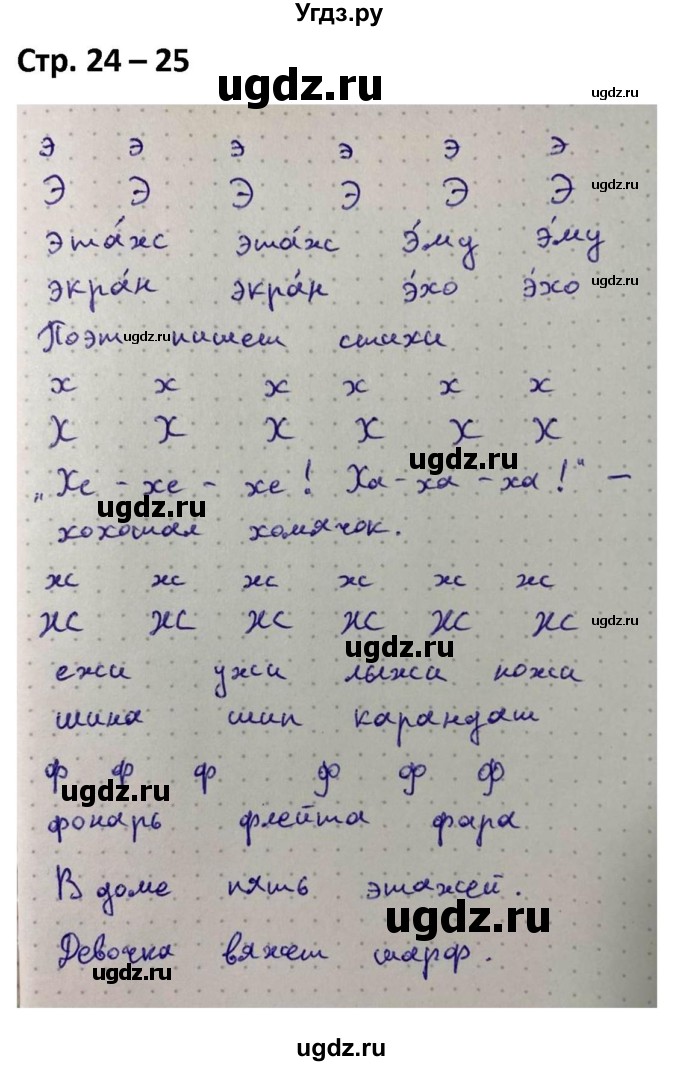 Угдз.ру
Стр. 24 – 25
ugdz.ru
ugdz.ru
э э э э э э
Э Э Э Э Э Э
ugdz.ru
эта́ж эта́ж э́му э́му
экра́н экра́н э́хо э́хо
ugdz.ru
Поэт пишет стихи
ugdz.ru
х х х х х х
Х Х Х Х Х Х
ugdz.ru
„Хе - хе - хе! Ха - ха - ха!“ –
ugdz.ru
хохотал хомячок.
ж ж ж ж ж ж
Ж Ж Ж Ж Ж Ж
ugdz.ru
ugdz.ru
ежи ужи лыжи ножи
шина шип карандаш
ф ф ф ф ф ф
ugdz.ru
фонарь флейта фара
В доме пять этажей.
ugdz.ru
Девочка вяжет шарф.
ugdz.ru
ugdz.ru